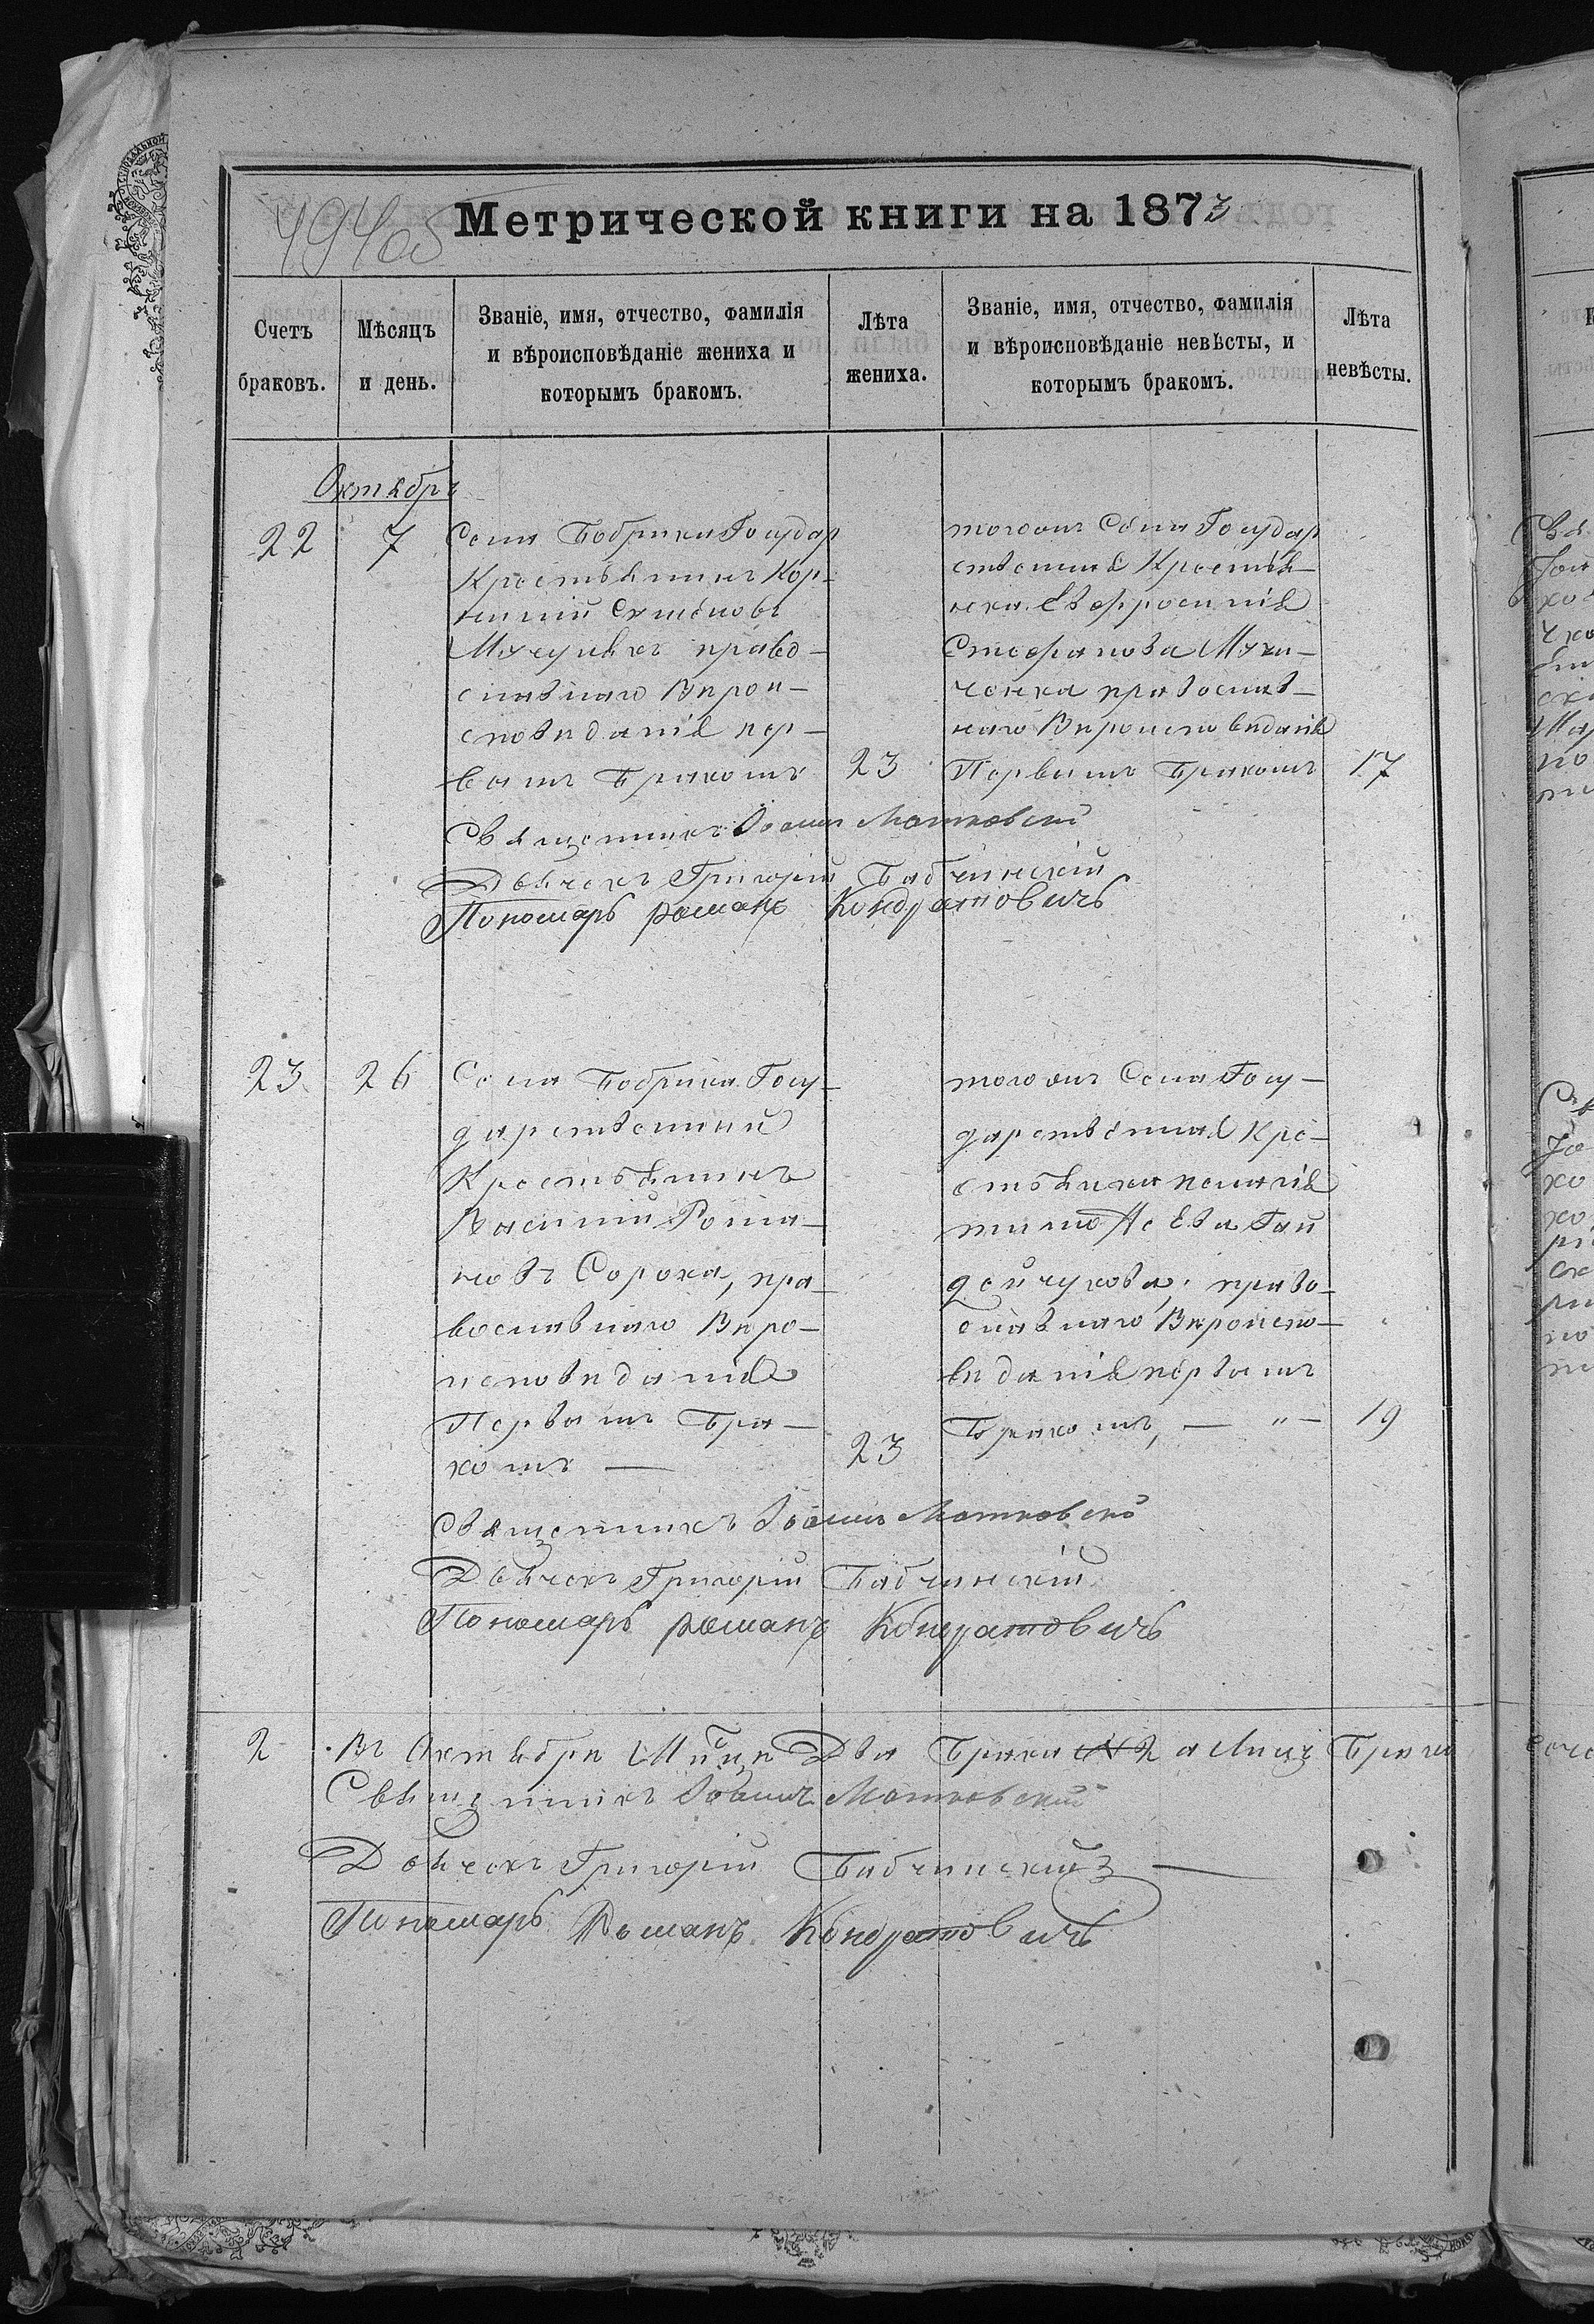 494об
Метрической книги на 1873
Счетъ браковъ.
Мѣсяцъ и день.
Званіе, имя, отчество, фамилія
и вѣроисповѣданіе жениха и
которымъ бракомъ.
Лѣта жениха.
Званіе, имя, отчество, фамилія
и вѣроисповѣданіе невѣсты, и
которымъ бракомъ.
Лѣта невѣсты.
Октябрь
22
7
Села Бобрика Государ
Крестьянинъ Кор-
нилій
православнаго Вѣрои-
сповѣданія пер-
вымъ Бракомъ
23
тогожъ Села Государ
ственная Крестья-
нка Евфросинія
Стефанова
православ-
наго Вѣроисповѣданія
Первымъ Бракомъ
17
Священникъ Іоаннъ Матковскій
Дьячекъ Григорій Бабчинскій
Пономарь романъ Кондратовичъ
23
26
Села Бобрика Госу-
дарственный
Крестьянинъ
Василій Рома-
новъ Сорока, пра-
вославнаго Вѣро-
исповѣданія
Первымъ Бра-
комъ —
23
тогожъ Села Госу-
дарственная Кре-
стьянка
Тимоѳеева Гай
дейчукова, право-
славнаго Вѣроиспо-
вѣданія первымъ
Бракомъ, — " —
19
Священникъ Іоаннъ Матковскій
Дьячекъ Григорій Бабчинскій
Пономарь романъ Кондратовичъ
2
Въ Октябрѣ М-цѣ Два Брака
Священникъ Іоаннъ Матковскій
Дьячекъ Григорій Бабчинскій —
Пономарь Романъ Кондратовичъ